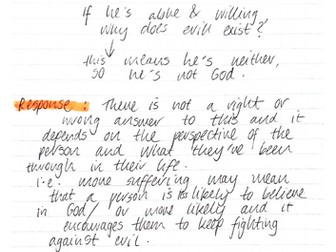 if he's able & willing
why does evil exist?
this means he's neither,
so he's not God.
Response: There is not a right or
wrong answer to this and it
depends on the perspective of the
person and what they've been
through in their life.
i.e. more suffering may mean
that a person is likely to believe
in God/ or more likely and it
encourages them to keep fighting
against evil.